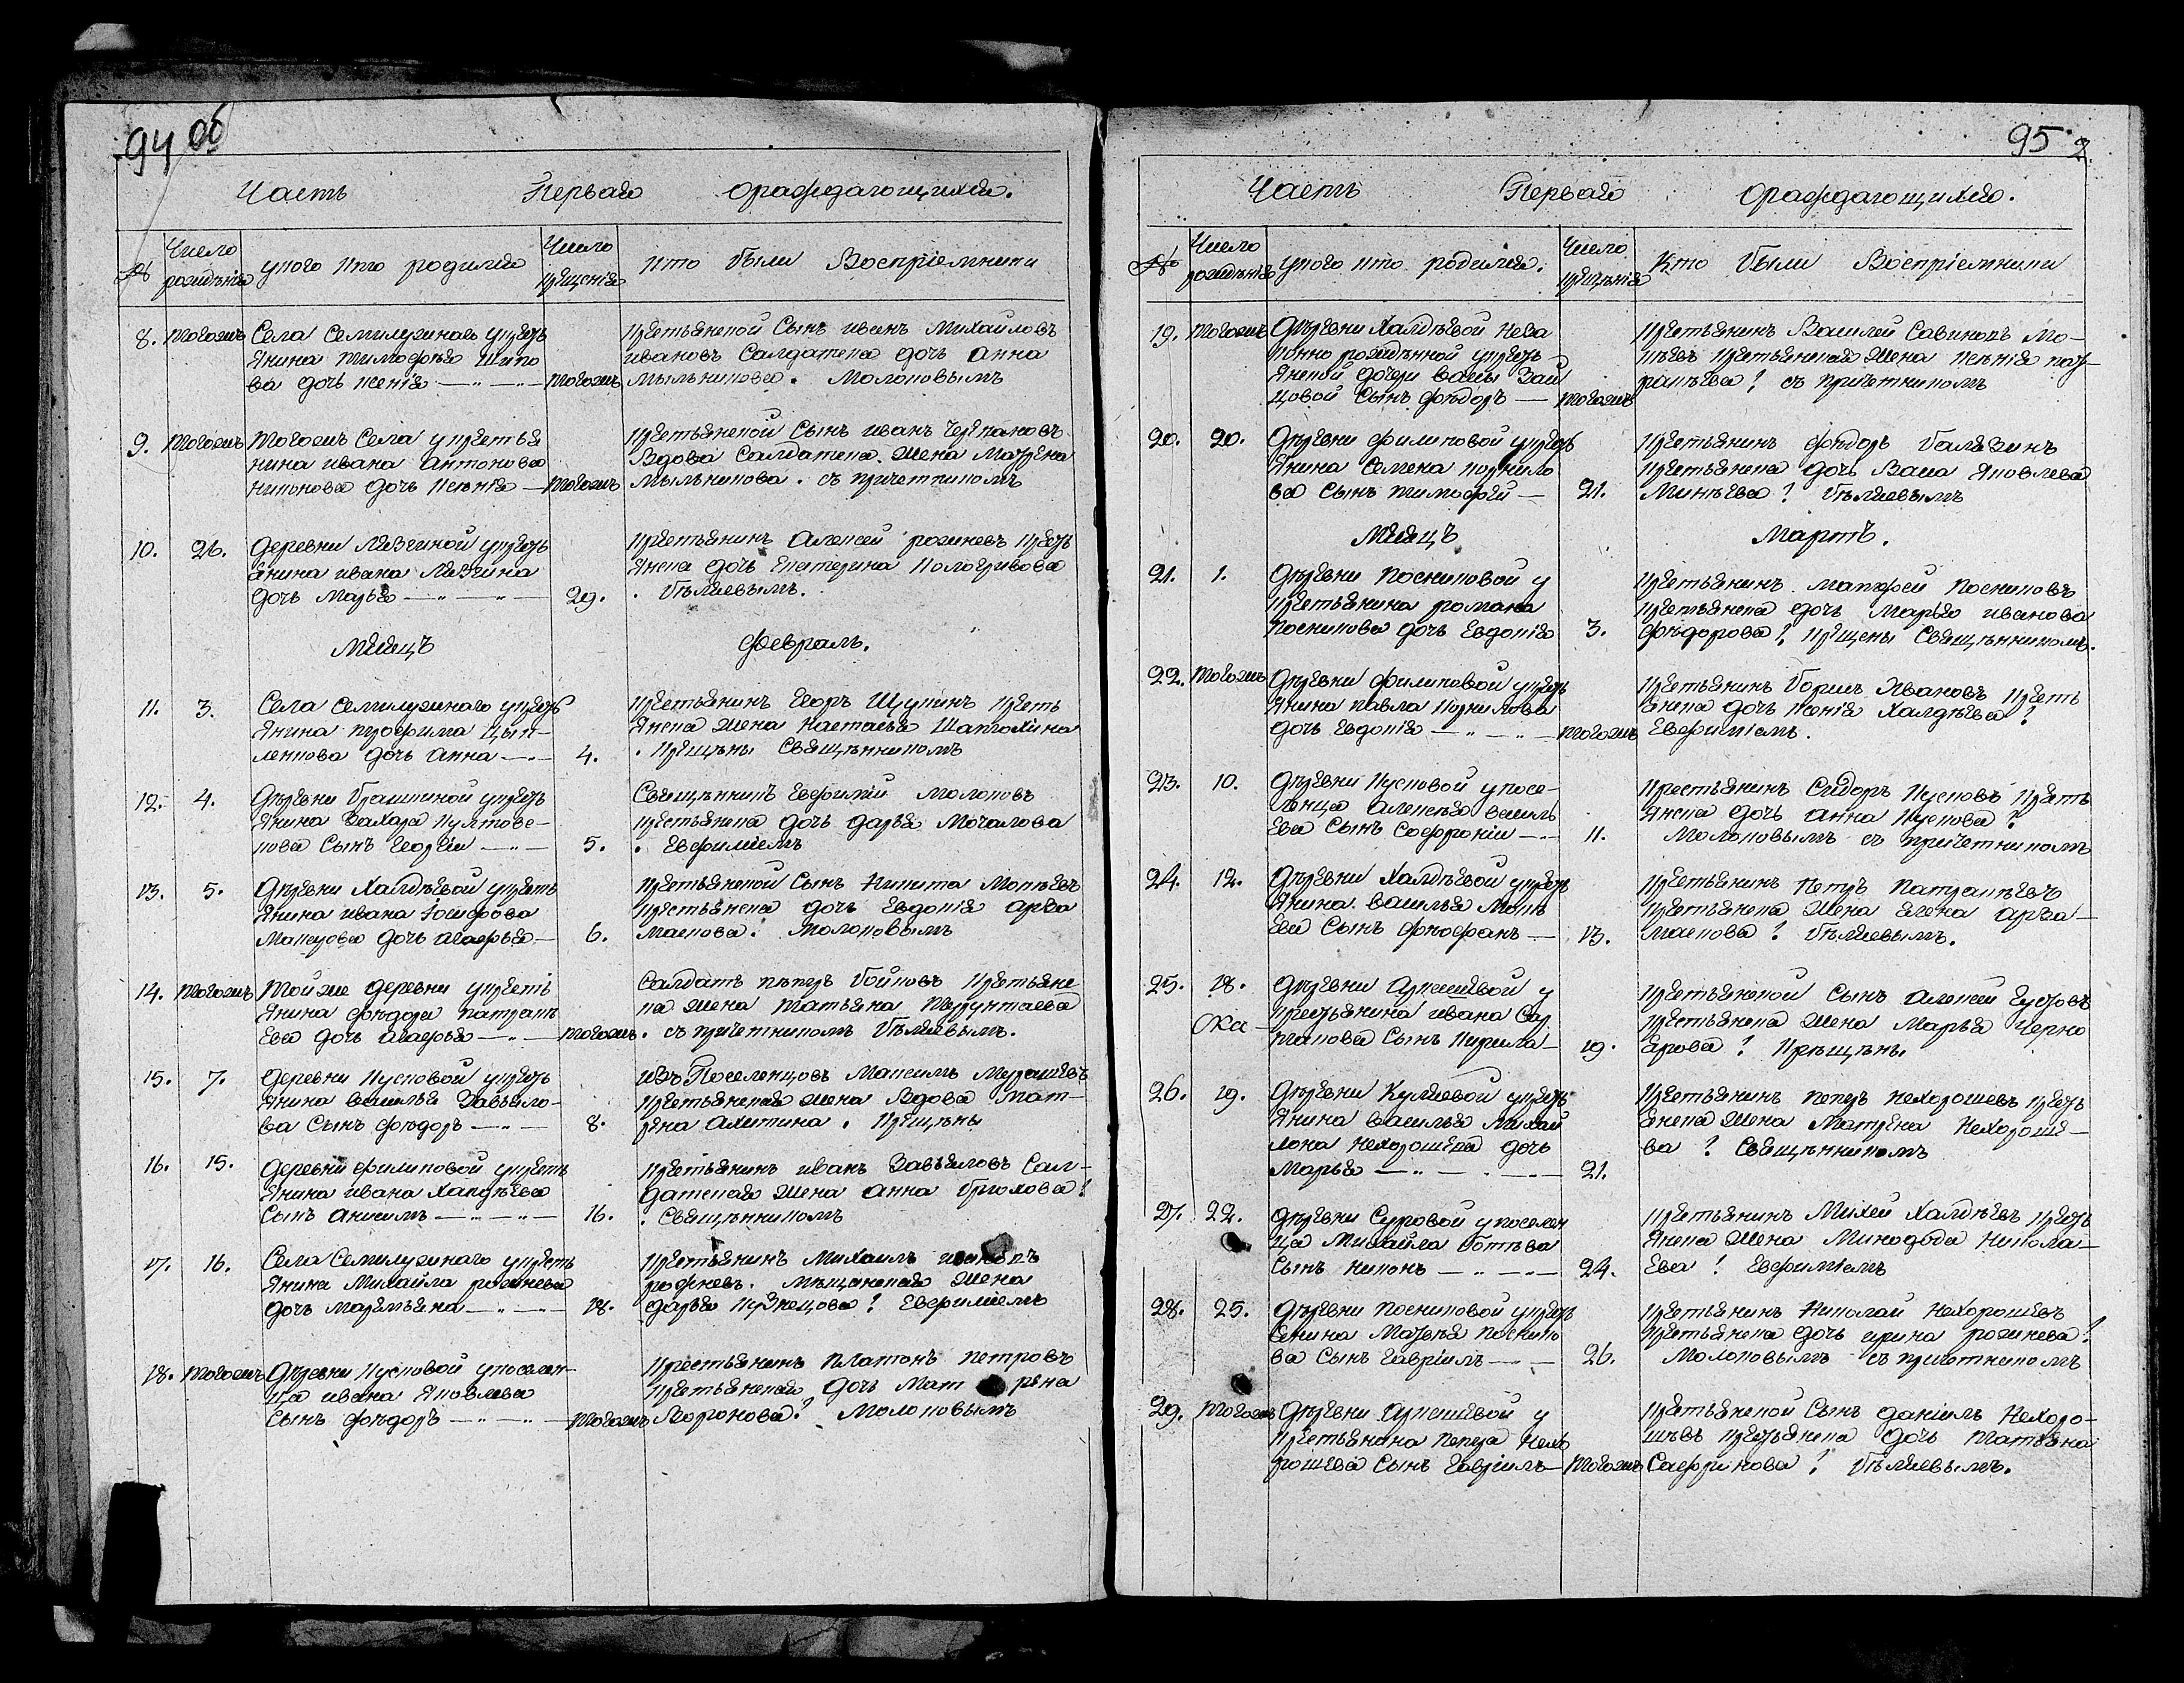 94 об
Часть Первая ораждающихся.
№ Число рождения у кого кто родился Число крещения кто были Восприемники
8. тогожъ Села Семилужнаго укресть
янина тимофея Шипо
ва дочь ксенія тогожъ
крестьянской Сынъ иванъ Михайловъ
ивановъ Салдатска дочь анна
мыльникова. Молоковымъ
9. тогожъ тогожъ Села у крестья
нина ивана антонова
дочь ксенія тогожъ
крестьянской Сынъ иванъ Черкановъ
Вдова Салдатска жена Матрена
мыльникова. съ причетникомъ
10. 26. деревни Лязгиной укресть
янина ивана Лязгина
дочь марья 29.
крестьянинъ алексей рожневъ кресть
янска дочь Екатерина Кологривова
Беляевымъ.
Месяцъ Февраль.
11. 3. Села Семилужнаго укресть
янина трофима Цып-
ленкова дочь анна 4.
крестьянинъ Егоръ Щукинъ кресть
янска жена настасья Шапохина
крещены Священникомъ
12. 4. деревни Брашкиной укресть
янина Захара
сынъ георгіи 5.
Священникъ Евфимій молоковъ
крестьянска дочь дарья Мочалова
Евфиміемъ
13. 5. деревни Халдеевой укресть
янина ивана Іосифова
дочь агафья 6.
крестьянской Сынъ никита Мокеевъ
крестьянска дочь Евдокія арза
масцова. Молоковымъ
14. тогожъ тойже деревни укресть
янина федора патрак
ева дочь агафья тогожъ
Салдатъ петръ Бойковъ крестьянс
ка жена татьяна
съ причетникомъ Беляевымъ.
15. 7. деревни Кусковой укресть
янина василья Завьяло-
ва Сынъ федоръ 8.
изъ Поселенцовъ Максимъ Мурашевъ
крестьянская жена Вдова Мат-
рена ахитина. крещены
16. 15. деревни филиповой укресть
янина ивана Халдеева
Сынъ анисимъ 16.
крестьянинъ иванъ Завьяловъ Сал-
датская жена анна Брюхова!
Священникомъ
17. 16. Села Семилужнаго укресть
янина Михайла рожнева
дочь маремьяна 18.
крестьянинъ Михаилъ
рожневъ. мещанская жена
дарья Кузнецова! Евфиміемъ
18. тогожъ деревни Кусковой упоселен-
ца ивана Яковлева
Сынъ федоръ тогожъ
крестьянинъ Платонъ петровъ
крестьянская дочь Матрена
Воронова! Молоковымъ
95. 2.
Часть Первая Ораждающихся.
№ Число рождения укого кто родился. Число крещения Кто были Восприемники
19. тогожъ деревни Халдеевой неза
конно рожденной укресть-
янской дочери васы Зай
цовой Сынъ федоръ тогожъ
крестьянинъ Василей Савиновъ Мо-
кеевъ крестьянская жена ксенія пат-
ракеева! съ причетникомъ
20. 20. деревни филиповой укресть
янина Семена корнило
ва Сынъ тимофей 21.
крестьянинъ федоръ Балязинъ
крестьянска дочь Васа Яковлева
Минеева! Беляевымъ
Месяцъ Мартъ.
21. 1. деревни Посниковой у
крестьянина романа
посникова дочь Евдокія 3.
крестьянинъ матфей Посниковъ
крестьянска дочь Марья иванова
федорова! крещены Священникомъ.
22. тогожъ деревни филиповой укресть
янина павла Корнилова
дочь Евдокія тогожъ
крестьянинъ Борисъ Ивановъ кресть
янска дочь ксенія Халдеева!
Евфиміемъ.
23. 10. деревни Кусковой упосе-
ленца алексея василь
ева Сынъ Софроніи 11.
крестьянинъ Сидоръ Кусковъ кресть
янска дочь анна Кускова!
Молоковымъ съ причетникомъ
24. 12. деревни Халдеевой укресть
янина василья Моке
ева Сынъ феофанъ 13.
крестьянинъ петръ патракеевъ
крестьянска жена Елена арза-
масцова! Беляевымъ.
25. 18. деревни аркашевой у
ока- крестьянина ивана Сар
танова Сынъ Кирила 19.
крестьянской Сынъ алексей Губовъ
крестьянска жена Марья Черно
ярова! крещенъ.
26. 19. деревни Куляевой укресть
янина василья Михай
лова нехорошева дочь
Марья 21.
крестьянинъ петръ нехорошевъ кресть
янска жена Матрена Нехороше-
ва! Священникомъ
27. 22. деревни Суровой упоселен
ца Михайла Ботева
Сынъ никонъ 24.
крестьянинъ Михей Халдеевъ кресть
янска жена Минодора никола-
ева! Евфиміемъ
28. 25. деревни посниковой укресть
янина Матвея посник
ва Сынъ гавріилъ 26.
крестьянинъ николай нехорошевъ
крестьянска дочь ирина рожнева!
Молоковымъ съ причетникомъ
29. тогожъ деревни аркашевой у
крестьянина петра нехо
рошева Сынъ гавріилъ тогожъ
крестьянской Сынъ даніилъ нехоро-
шевъ крестьянска дочь татьяна
Сафронова! Беляевымъ.